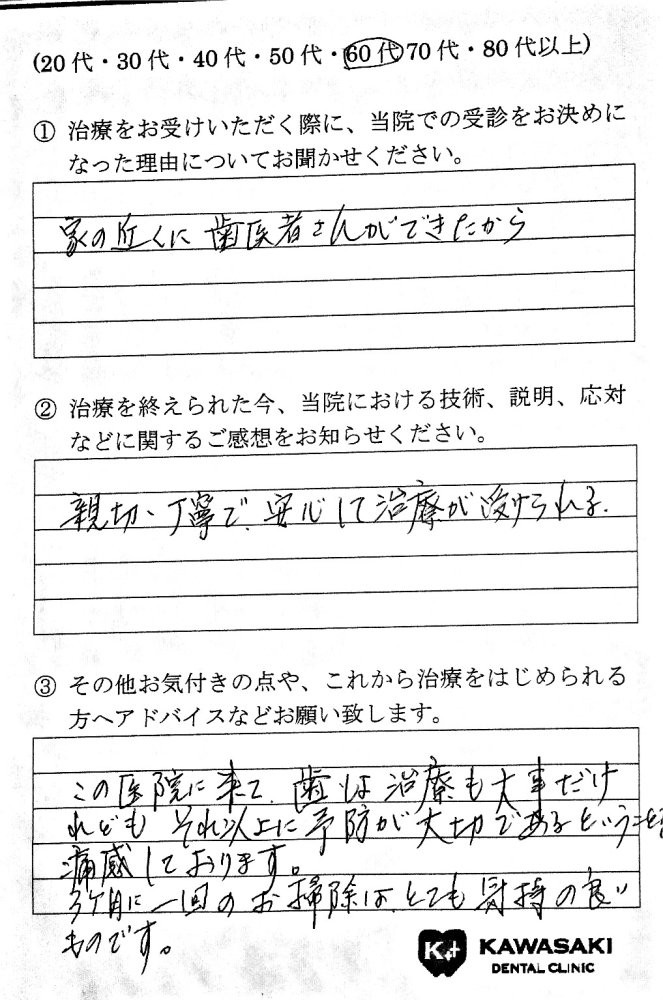 (20代・30代・40代・50代・60代・70代・80代以上)
① 治療をお受けいただく際に、当院での受診をお決めに
なった理由についてお聞かせください。
家の近くに歯医者さんができたから
② 治療を終えられた今、当院における技術、説明、応対
などに関するご感想をお知らせください。
親切、丁寧で、安心して治療が受けられる.
③ その他お気付きの点や、これから治療をはじめられる
方へアドバイスなどお願い致します。
この医院に来て、歯は治療も大事だけ
れどもそれ以上に予防が大切であるということを
痛感しております。
3ヶ月に一回のお掃除は、とても気持の良い
ものです。
K+ KAWASAKI
DENTAL CLINIC